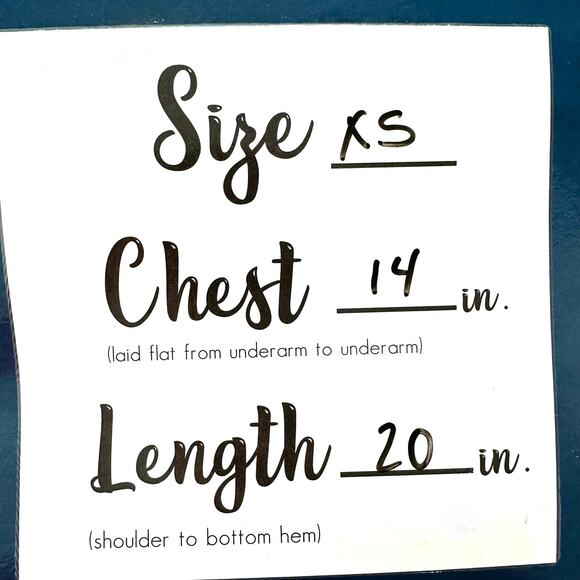 Size XS
Chest 14 in.
(laid flat from underarm to underarm)
Length 20 in.
(shoulder to bottom hem)